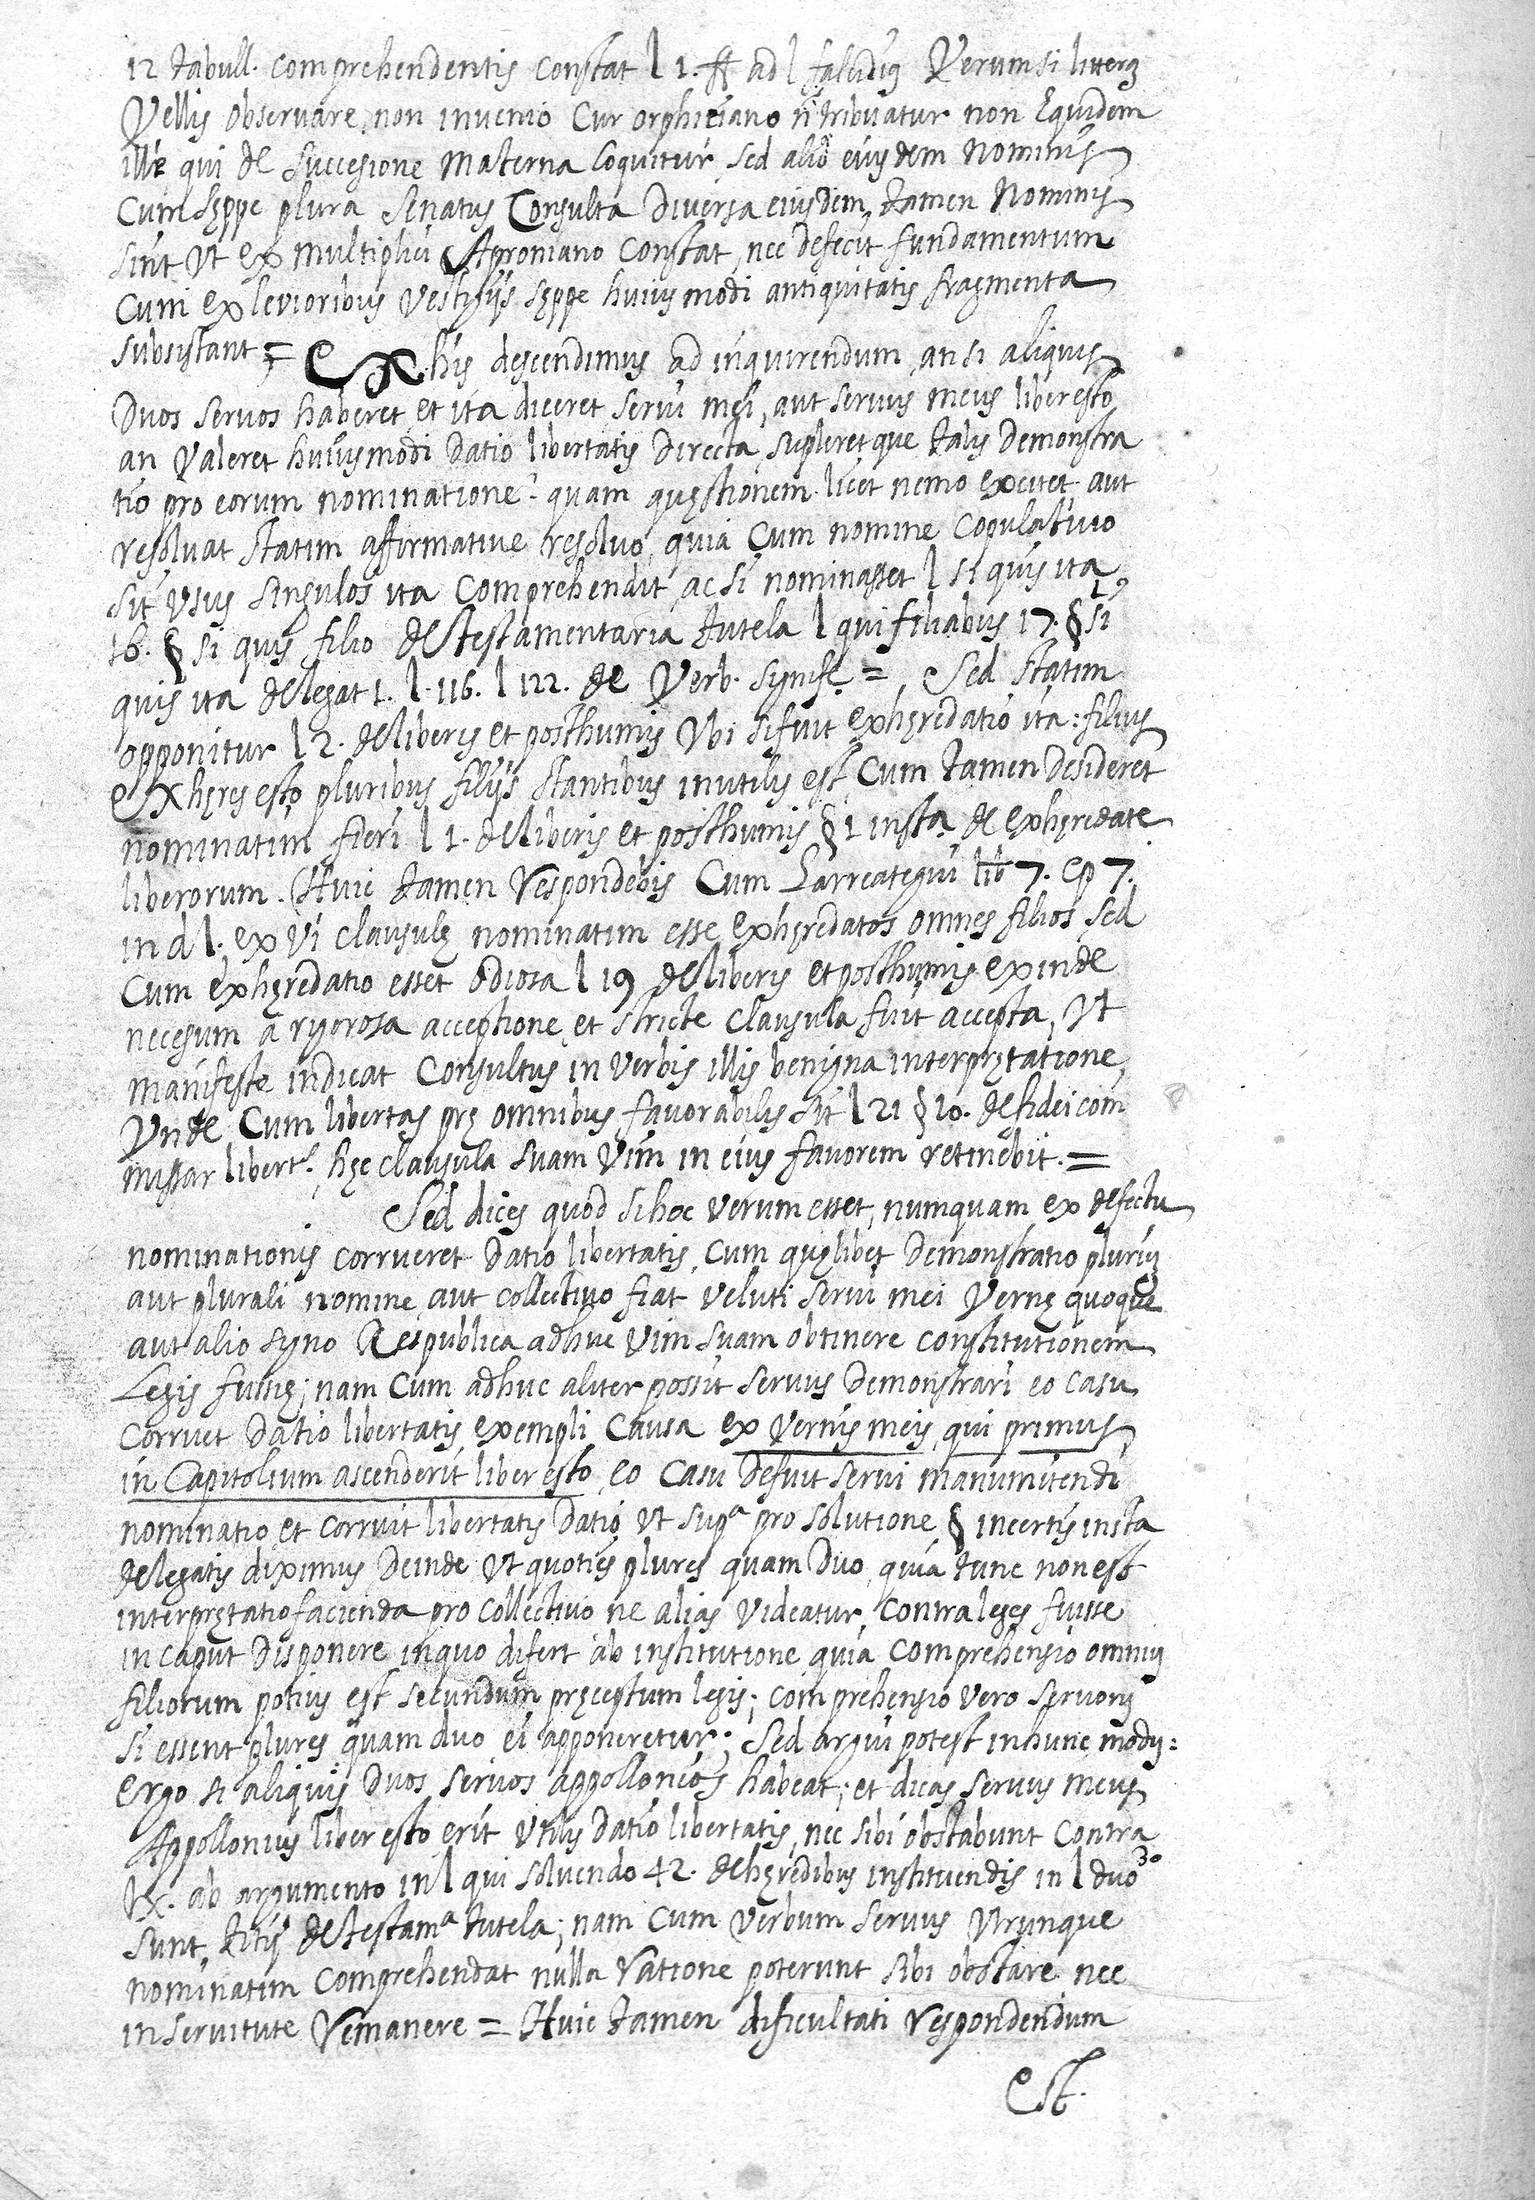 12 tabull. comprehendentis constat l 1. ff ad l falcidią Verum si literą
Vellis observare, non invenio Cur orphiciano ñ tribuatur non Equidem
ille qui de succesione Materna loquitur sed alio eiusdem Nominis
Cum sęppe plura Senatus Consulta Diversa eiusdem, tamen Nominis
sint Vt ex multiplici Aproniano Constat, nec defecit fundamentum
Cum ex levioribus vestigijs sęppe huiusmodi antiquitatis fragmenta
subsistant = Ex his descendimus ad inquirendum, an si aliquis
Duos servos haberet et ita diceret servi mei, aut servus meus liber esto
an Valeret huiusmodi Datio libertatis Directa, supleretque talis Demonstra
tio pro eorum nominatione? quam quęstionem licet nemo excitet aut
resolvat statim affirmative resolvo, quia Cum nomine Copulativo
sit usus singulos ita Comprehendit, ac si nominasset l si quis ita
16. § si quis filio de testamentaria tutela l qui filiabus 17. § si
quis ita de legat 1. l. 116. l 122. de Verb. signifę = Sed statim
opponitur l 2. de liberis et posthumis Vbi si fuit exhęredatio ita: filius
exhęres esto pluribus filijs stantibus inutilis est Cum tamen desideret
nominatim fieri l 1. de liberis et posthumis § 1 insta de exhęredate
liberorum. Huic tamen Respondebis Cum Larreategui lib 7. cp 7.
in d l. ex vi clausulę nominatim esse exhęredatos omnes filios, sed
Cum exhęredatio esset odiosa l 19 de liberis et posthumis exinde
necesum a rigorosa acceptione, et stricte clausula fuit accepta, Vt
manifeste indicat Consultus in verbis illis benigna interprętatione,
Vnde Cum libertas prę omnibus favorabilis sit l 21 § 10. de fideicom
missar libert.s hęc clausula suam vim in eius favorem retinebit. =
Sed dices quod si hoc verum esset, numquam ex defectu
nominationis corrueret Datio libertatis, Cum quęlibet Demonstratio pluriũ
aut plurali nomine aut collectivo fiat veluti servi mei Vernę quoque
aut alio signo Respublica adhuc vim suam obtinere constitutionem
Legis fussię; nam Cum adhuc aliter possit servus Demonstrari eo casu
Corruet Datio libertatis, exempli Causa ex Vernis meis, qui primus
in Capitolium ascenderit liber esto, eo Casu Defuit servi manumitendi
nominatio, et corruit libertatis Datio, Vt supª pro solutione § incertis insta
de legatis diximus Deinde Vt quoties plures quam Duo, quia tunc non est
interprętatio facienda pro Collectivo ne alias Videatur, Contra leges fuisse
in caput Disponere in quo difert ab institutione, quia Comprehensio omniũ
filiorum potius est secundum pręceptum legis; comprehensio vero servorũ
si essent plures quam duo ei apponeretur; Sed argui potest in hunc modũ:
ergo si aliquis Duos servos appollonios habeat, et dicas servus meus
Appollonius liber esto erit Vtilis Datio libertatis, nec sibi obstabunt Contra
tx. ab argumento in l qui solvendo 42. de hęredibus instituendis in l duo 30
sunt titij de testamª tutela; nam Cum Verbum Servus Vtrunque
nominatim comprehendat nulla Ratione poterunt sibi obstare nec
in servitute Remanere = Huic tamen dificultati Respondendum
Est.